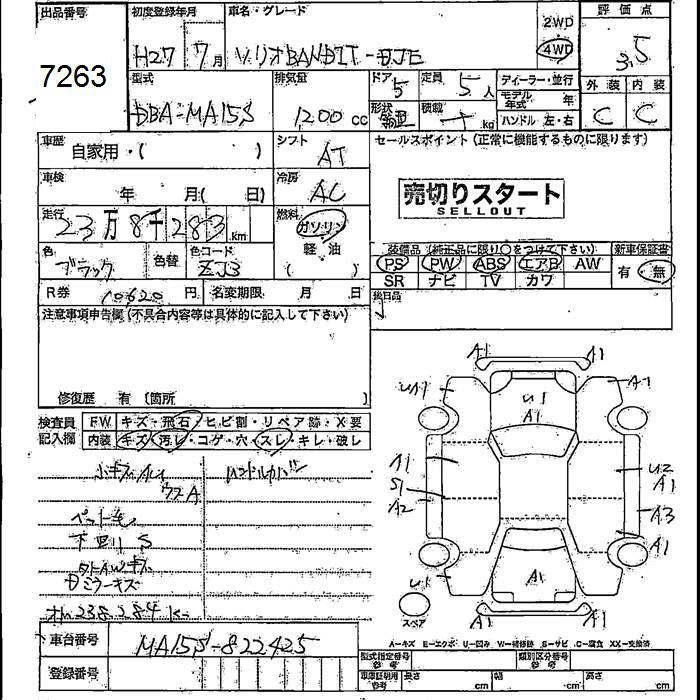 出品番号 初度登録年月 車名・グレード 評価点
7263 H27 7月 ソリオBANDIT-DJE 2WD 4WD 3.5
型式 排気量 ドア 5 定員 5人 ディーラー・並行 外装 内装
モデル年式 年
DBA-MA15S 1200cc 形状 積載 kg ハンドル 左・右 C C
車歴 シフト セールスポイント (正常に機能するものに限ります)
自家用・( ) AT
車検 冷房
年 月( 日) AC 売切りスタート
SELLOUT
走行 燃料
23万8千283km ガソリン
色 色替 色コード 軽・油 装備品 (純正品に限り○をつけて下さい) 新車保証書
ブラック ZJ3 ( ) PS PW ABS エアB AW 有・無
SR ナビ TV カワ
R券 10620円 名変期限 月 日 後日品
注意事項申告欄 (不具合内容等は具体的に記入して下さい)
修復歴 有 〔箇所 〕
検査員記入欄 FW キズ・飛石・ヒビ割・リペア跡・X要
内装 キズ・汚レ・コゲ・穴・スレ・キレ・破レ
小キズ ハンドルカバー
ペット毛
下回りS
Dミラーキズ
車台番号 MA15S-822425
登録番号
A1 A1
U1 A1
A1
A1 U2
S1 A1
A2 A3
A1
A1
A1 A1
スペア
A-キズ E-エクボ U-凹み W-補修跡 S-サビ C-腐食 XX-交換済
型式指定番号 参考 類別区分番号 参考
車庫証明用 参考 長さ cm 幅 cm 高さ cm